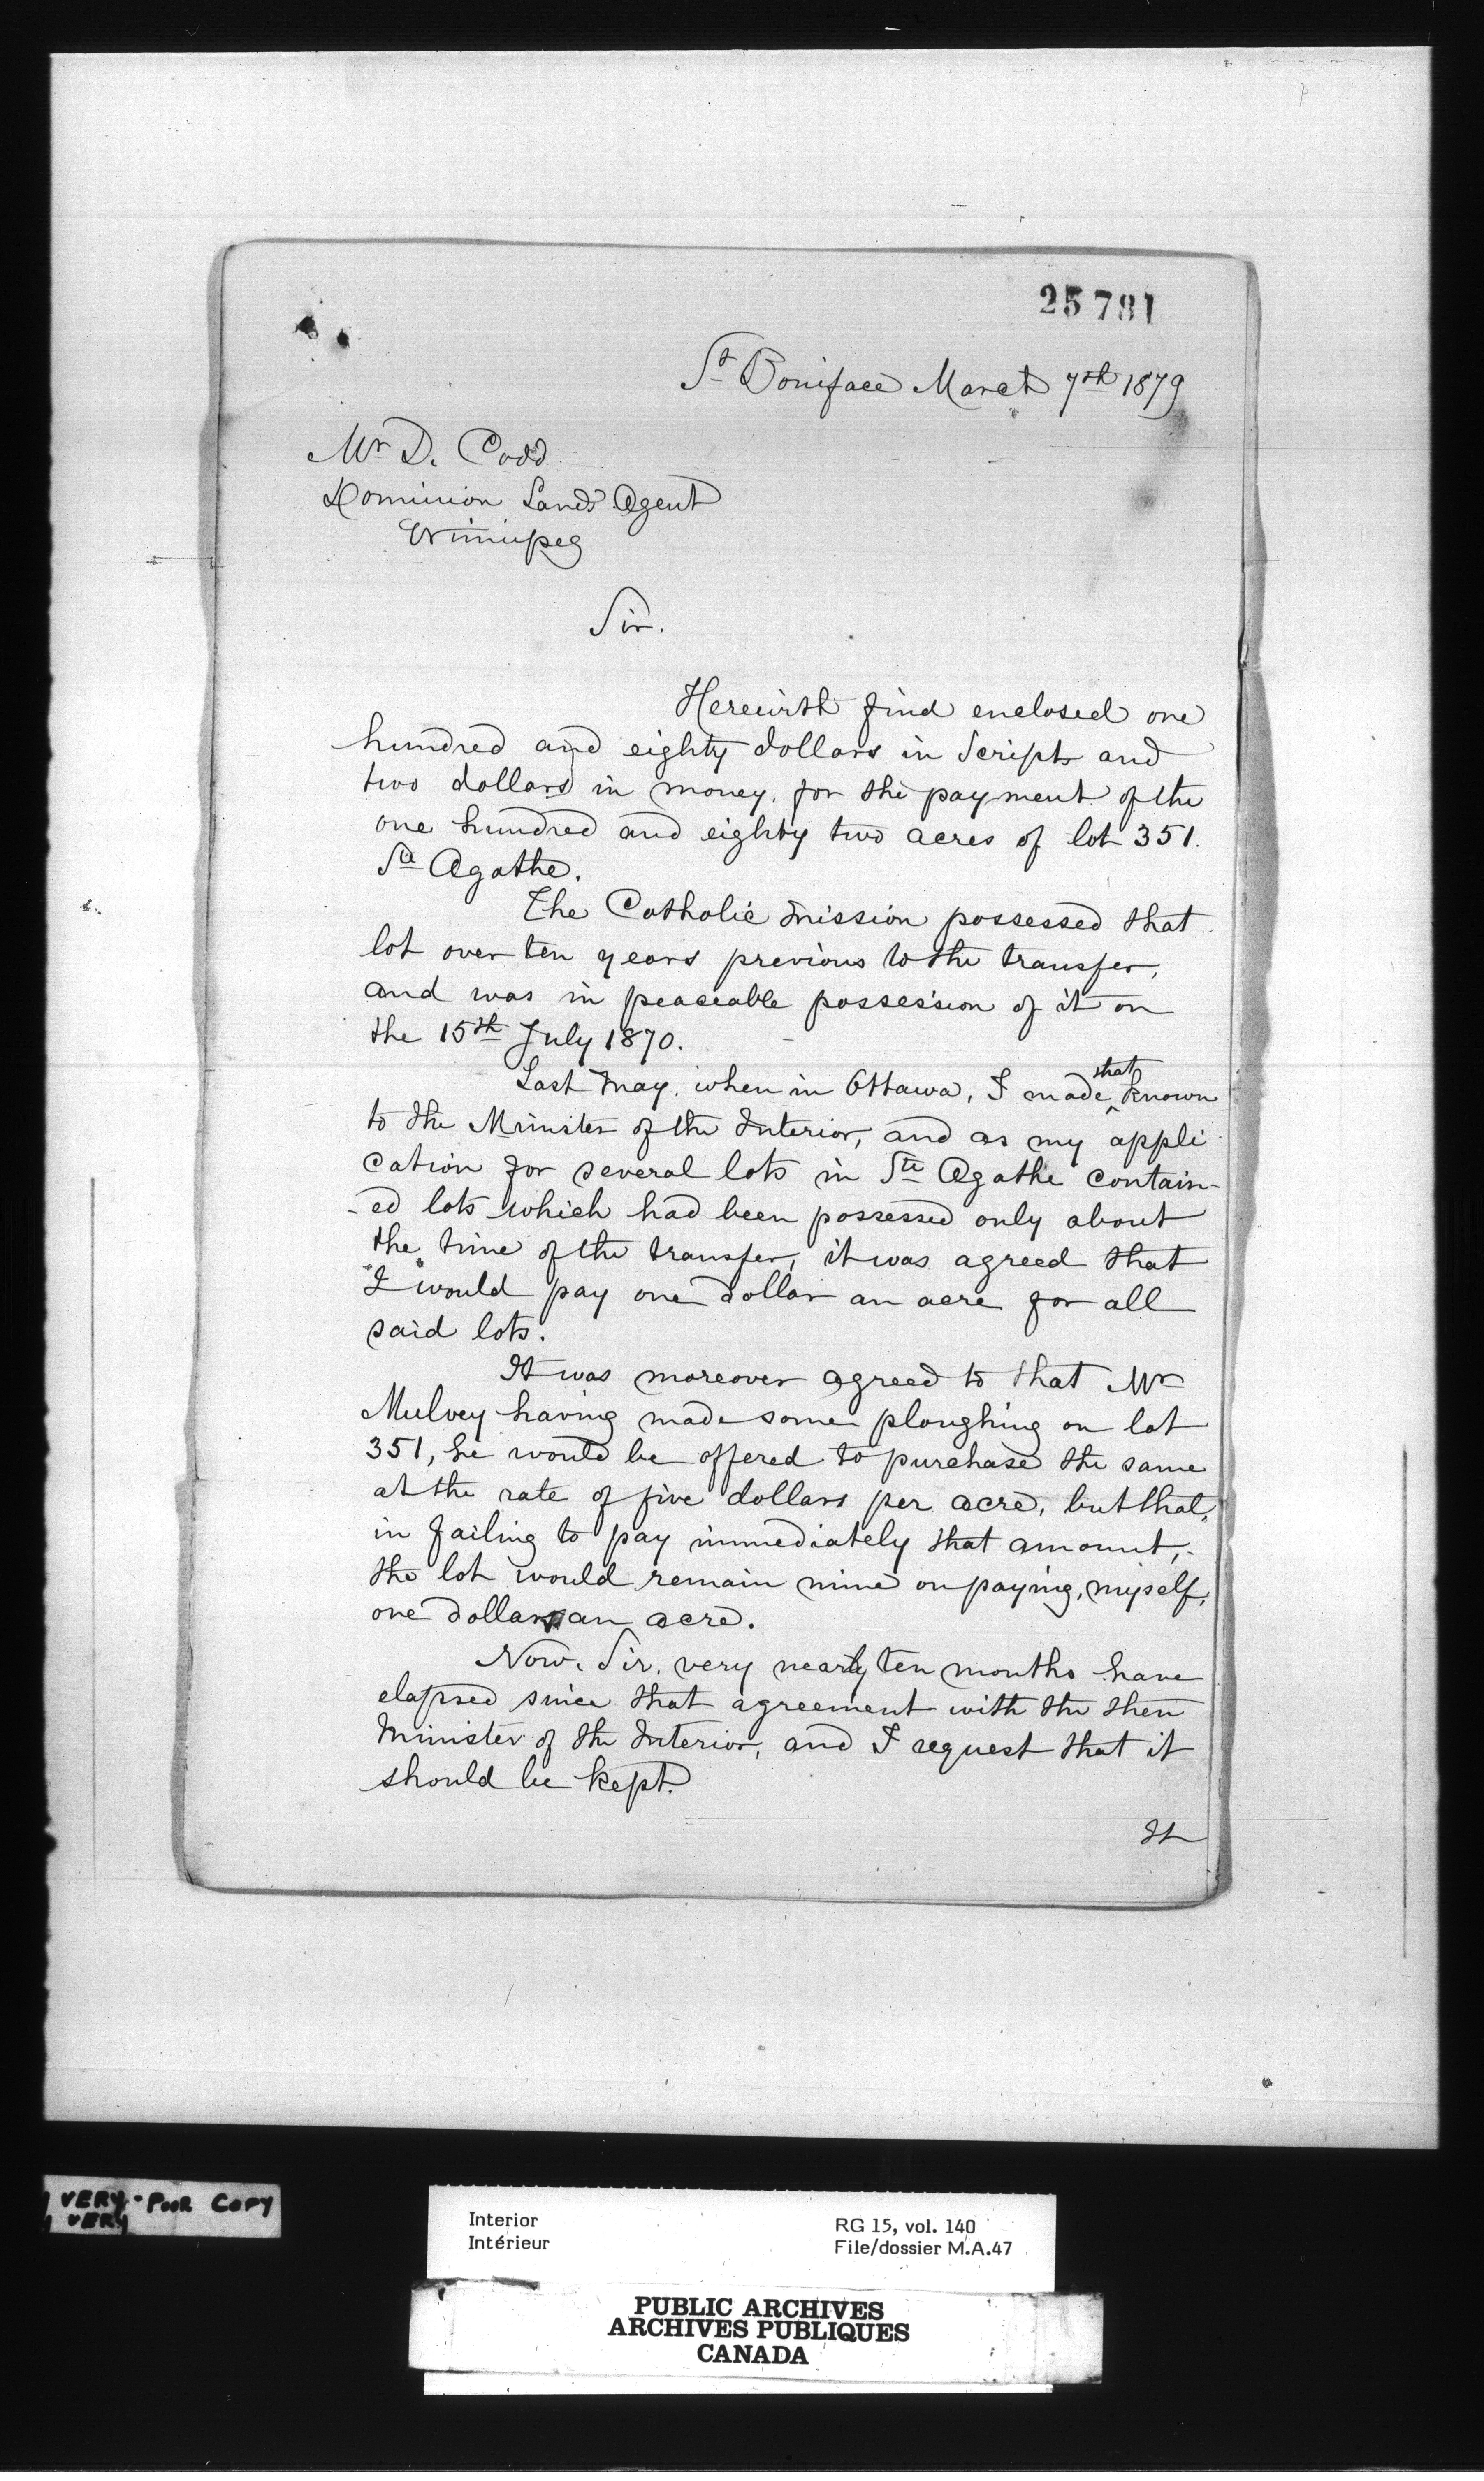 25781
St Boniface March 7th 1879
Mr D. Codd
Dominion Lands Agent
Winnipeg
Sir.
Herewith find enclosed one
hundred and eighty dollars in Scripts and
two dollars in money, for the payment of the
one hundred and eighty two acres of lot 351.
Ste Agathe.
The Catholic Mission possessed that
lot over ten years previous to the transfer,
and was in peaceable possession of it on
the 15th July 1870.
Last May, when in Ottawa, I made that known
to the Minister of the Interior, and as my appli
cation for several lots in Ste Agathe contain-
-ed lots which had been possessed only about
the time of the transfer, it was agreed that
"I" would pay one dollar an acre for all
said lots.
It was moreover agreed to that Mr
Mulvey having made some ploughing on lot
351, he would be offered to purchase the same
at the rate of five dollars per acre, but that,
in failing to pay immediately that amount,
the lot would remain mine on paying, myself,
one dollar an acre.
Now, Sir, very nearly ten months have
elapsed since that agreement with the then
Minister of the Interior, and I request that it
should be kept.
It
VERY POOR COPY
VERY
Interior
Intérieur
RG 15, vol. 140
File/dossier M.A.47
PUBLIC ARCHIVES
ARCHIVES PUBLIQUES
CANADA